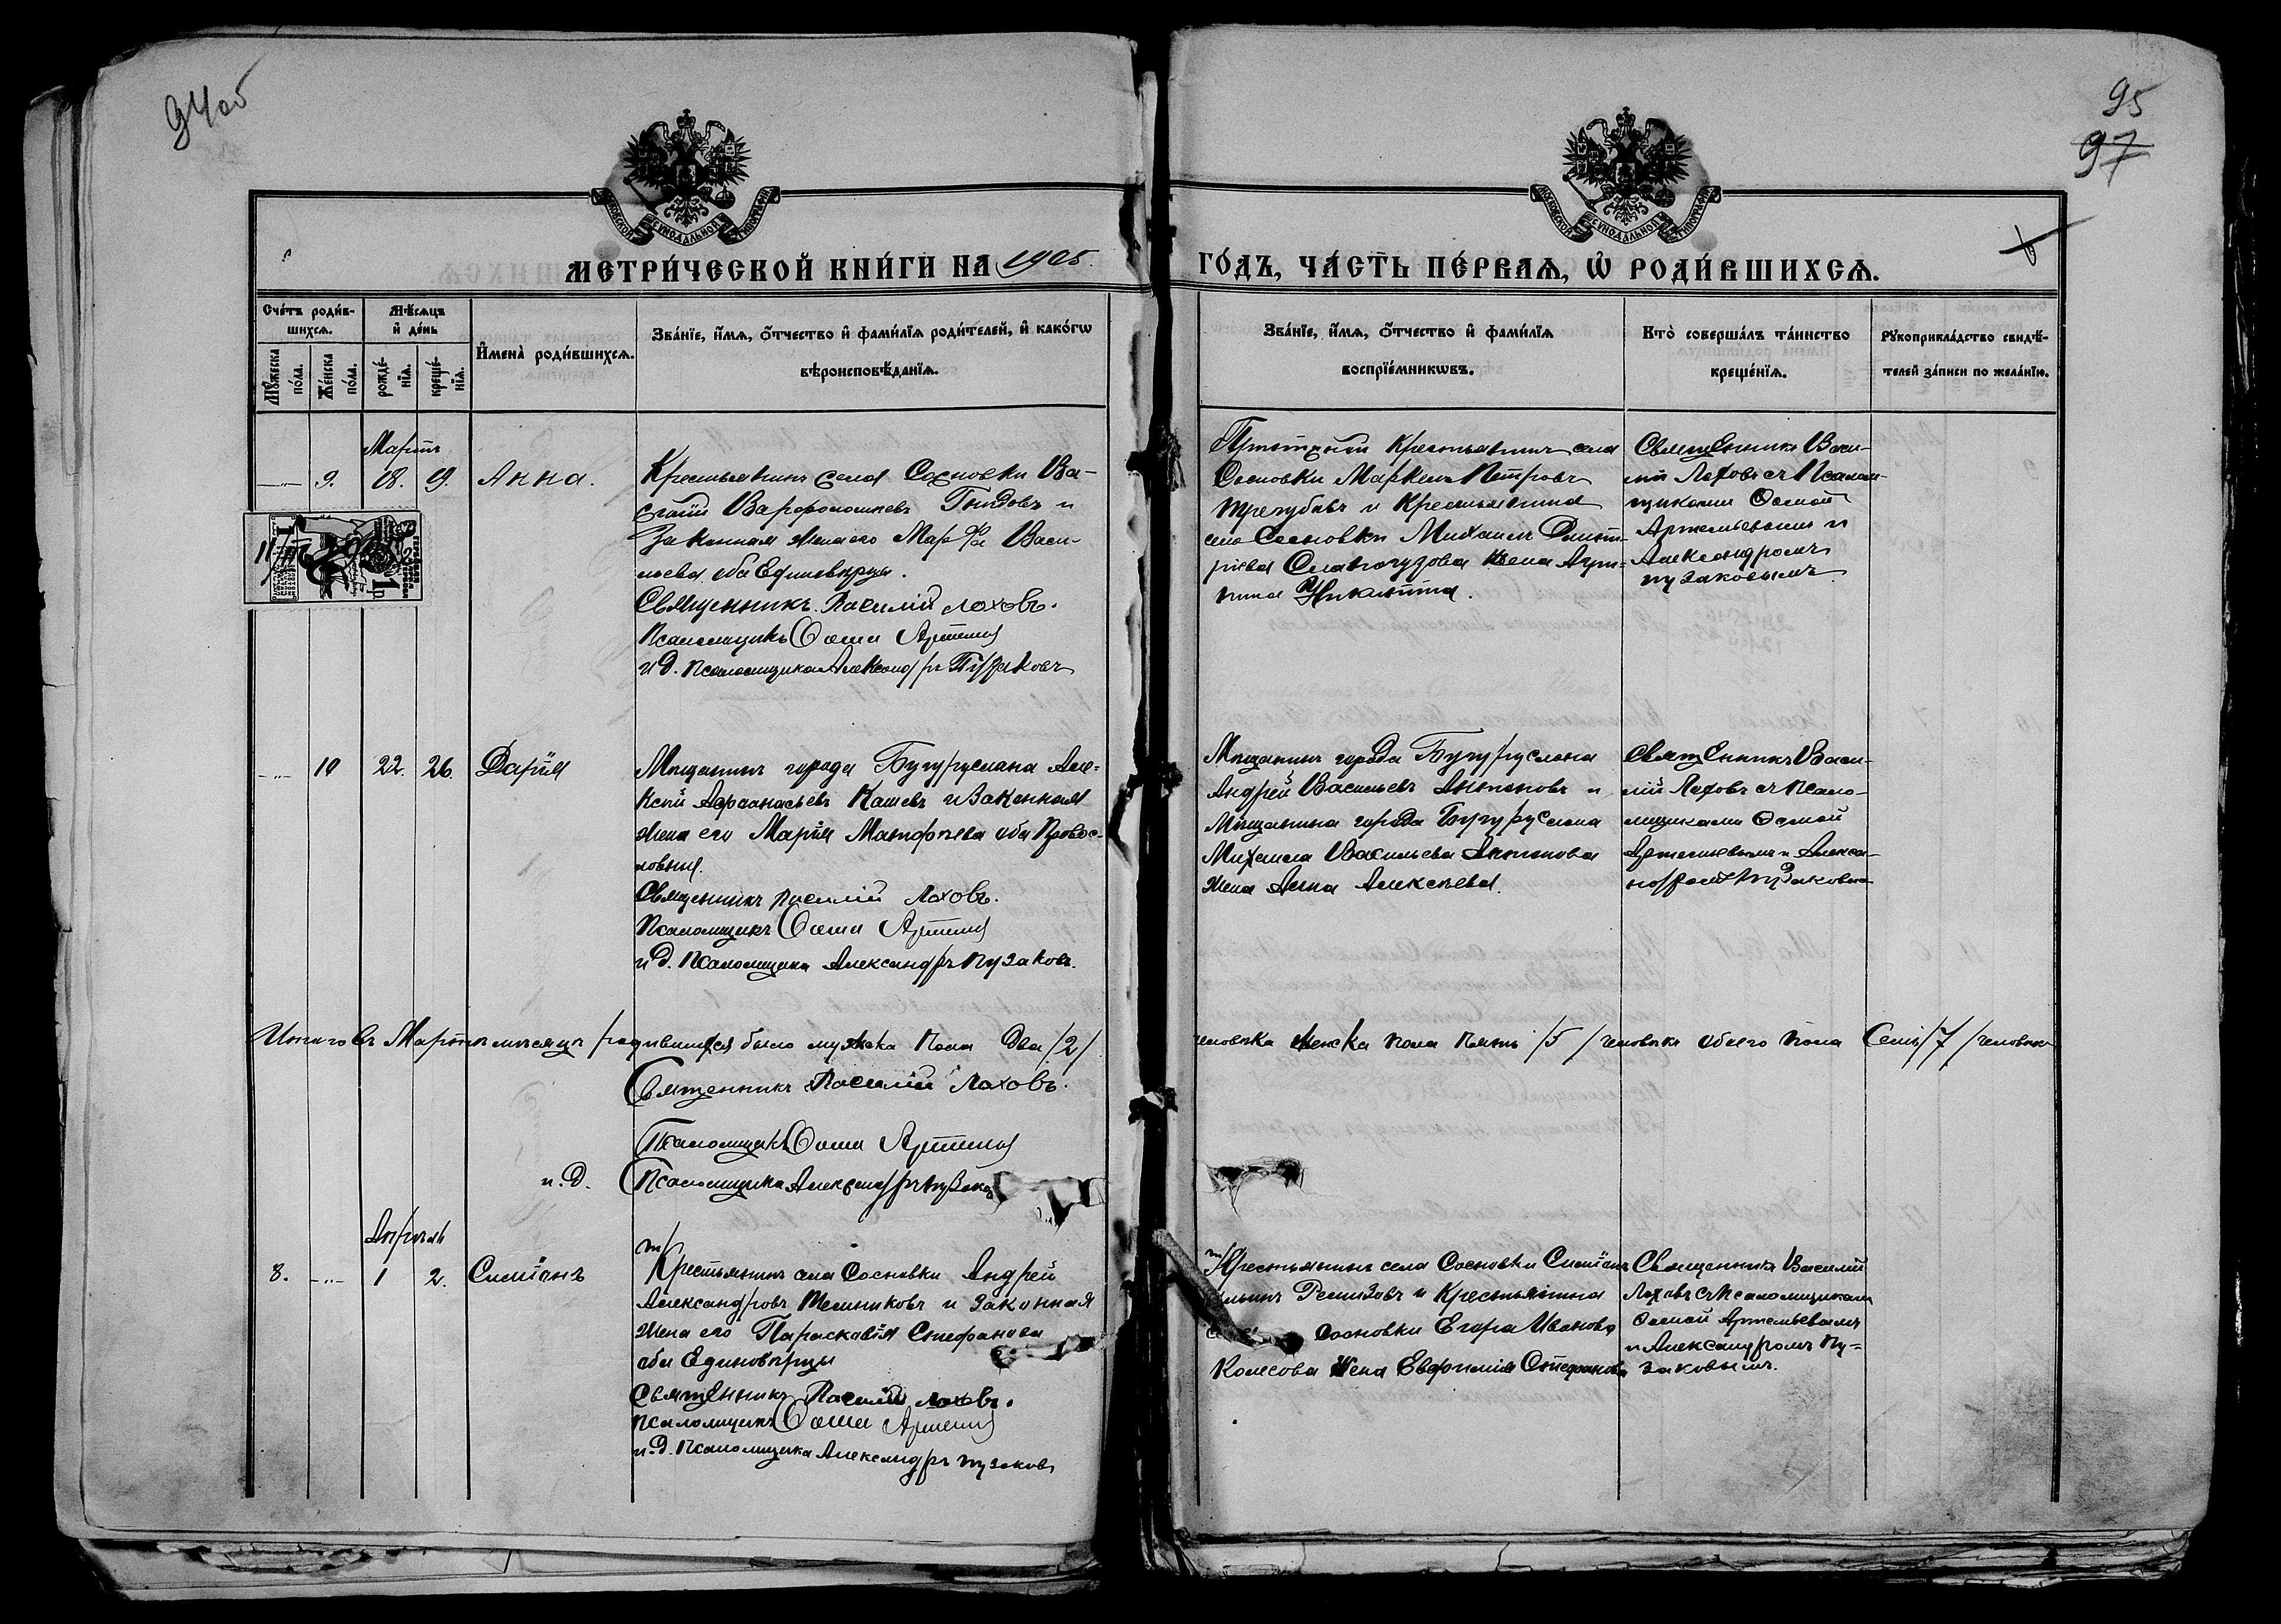 94об
95
97
МОСКОВСКОЙ СѴНОДАЛЬНОЙ ТИПОГРАФІИ
МОСКОВСКОЙ СѴНОДАЛЬНОЙ ТИПОГРАФІИ
МЕТРИ́ЧЕСКОЙ КНИ́ГИ НА 1905.
ГО́ДЪ, ЧА́СТЬ ПЕ́РВАѦ, Ѡ҆ РОДИ́ВШИХСѦ.
Сче́тъ роди́в-
шихсѧ.
Мѣ́сѧцъ
и҆ де́нь
Мꙋ́жеска по́ла.
Же́нска по́ла.
рожде́-нїѧ.
креще́-нїѧ.
И҆мена̀ роди́вшихсѧ.
Зва́нїе, и҆́мѧ, о҆́тчество и҆ фами́лїѧ роди́телей, и҆ како́гѡ
вѣроисповѣ́данїѧ.
Зва́нїе, и҆́мѧ, о҆́тчество и҆ фами́лїѧ
воспрїе́мникѡвъ.
Кто̀ соверша́лъ та́инство
креще́нїѧ.
Рꙋкоприкла́дство свидѣ́-
телей за́писи по жела́нїю.
Мартъ
9. 18. 19. Анна.
Крестьянинъ села Сосновки Ва-
силій Варфоломеевъ Гнидовъ и
Законная жена его Марѳа Васи-
льева оба Единовѣрцы.
Священникъ Василій Лоховъ.
Псаломщикъ Осаи Артемьев
и д. псаломщика Александръ Пузаковъ
крестьянинъ села
Сосновки Маркелъ Петровъ
Трегубовъ и Крестьянина
села Сосновки Михаила Дмит-
ріева жена
Священникъ Васи-
лій Лоховъ съ Псалом-
щиками
Артемьевымъ и
Александромъ
Пузаковымъ
10 22. 26. Дарія
Мѣщанинъ города Бугуруслана Але-
ксѣй Афанасьевъ Кашевъ и Законная
жена его Марія Матфѣева оба Правос-
лавныя.
Священникъ Василій Лоховъ.
Псаломщикъ Осаи Артемьев
и д. Псаломщика Александръ Пузаковъ.
Мѣщанинъ города Бугуруслана
Андрей Васильевъ Антоновъ и
Мѣщанина города Бугуруслана
Михаила Васильева Антонова
жена Анна Алексѣева.
Священникъ Васи-
лій Лоховъ съ Псало-
мщиками
Артемьевымъ и Алекса-
ндромъ Пузаковымъ
Итого въ Мартѣ мѣсяцѣ родившихся было мужска пола Два /2/ человѣка женска пола пять /5/ человѣкъ обоего пола Семь /7/ человѣкъ
Священникъ Василій Лоховъ.
Псаломщикъ Осаи Артемьев
и.д. Псаломщика Александръ Пузаков
Апрѣль
8. 1 2. Симеонъ
Крестьянинъ села Сосновки Андрей
Александровъ Мешниковъ и законная
жена его Параскавія Стефанова
оба Единовѣрцы
Священникъ Василій Лоховъ.
псаломщикъ Осаи Артемьев
и.д. Псаломщика Александръ Пузаковъ
Крестьянинъ села Сосновки Симеонъ
Ремизовъ и Крестьянина
Сосновки Егора Иванова
Колесова жена Евфимія Стефанова
Священникъ Василій
Лоховъ съ Псаломщиками
Артемьевымъ
и Александромъ Пу-
заковымъ.